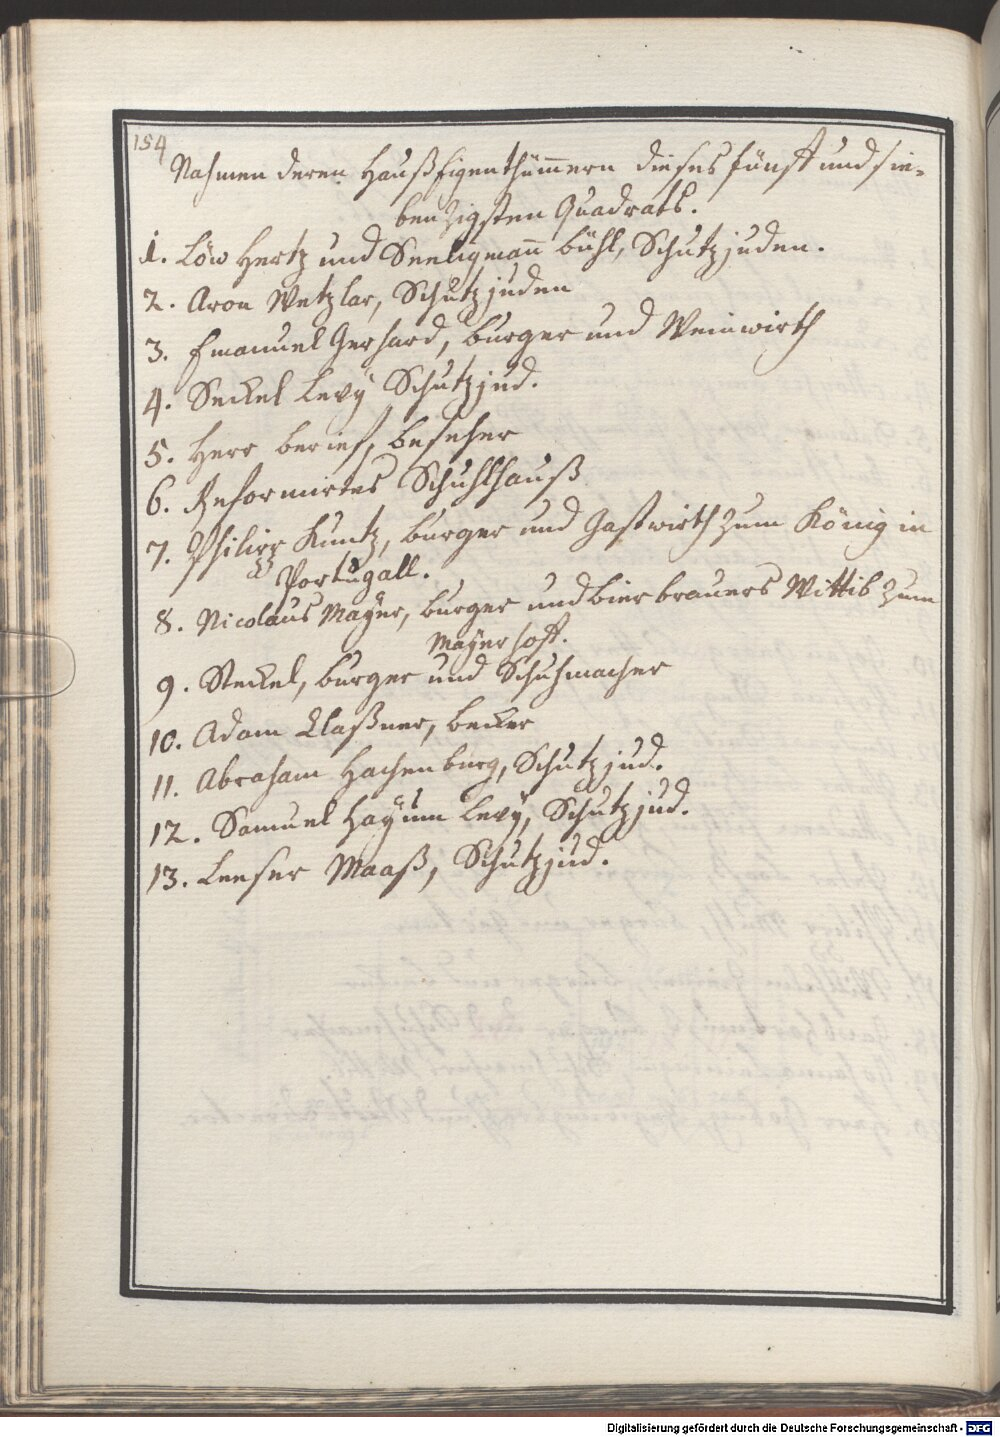 154
Nahmen deren Haußeigenthümmern dieses fünff und sie-
benzigsten Quadrats.
1. Löw Hertz und Seeligmann bühl, Schutzjuden.
2. Aron Wetzlar, Schutzjuden
3. Emanuel Gerhard, burger und Weinwirth
4. Seckel Levÿ Schutzjud.
5. Herr berief, beseher
6. Reformirtes Schuhlhauß
7. Philipp Kuntz, burger und Gastwirth zum König in
Portugall.
8. Nicolaus Maÿer, burger und bierbrauers Wittib zum
Maÿerhoff.
9. Steckel, burger und Schuhmacher
10. Adam Claßner, becker
11. Abraham Hachenburg, Schutzjud.
12. Samuel Haÿum Levÿ, Schutzjud.
13. Leeser Maaß, Schutzjud.
Digitalisierung gefördert durch die Deutsche Forschungsgemeinschaft - DFG